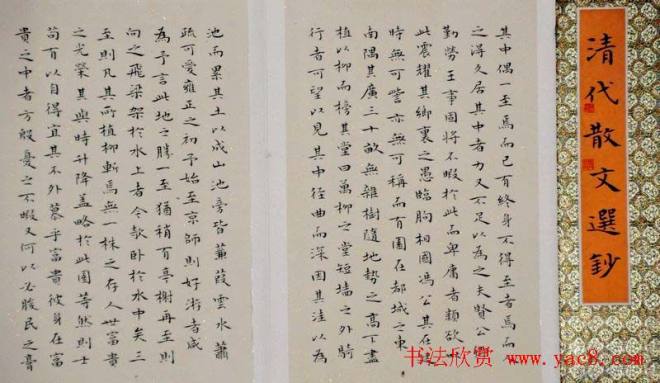 清代散文選鈔
其中偶一至焉而已有終身不得至者焉而
之得久居其中者力又不足以為之夫賢公卿
勤勞王事固將不暇於此而卑庸者類欲以
此震耀其鄉裏之愚臨朐相國馮公其在廷
時無可訾亦無可稱而有園在都城之東
南隅其廣三十畝無雜樹隨地勢之高下盡
植以柳而榜其堂曰萬柳之堂短墻之外騎
行者可望以見其中徑曲而深因其洼以為
池而累其土以成山池旁皆蒹葭雲水蕭
疏可愛雍正之初予始至京師則好游者咸
為予言此地之勝一至猶稍有亭榭再至則
向之飛梁架於水上者今欹臥於水中矣三
至則凡其所植柳斬焉無一株之存人世富貴
之光榮其與時升降蓋略於此園等然則士
苟有以自得宜其不外慕乎富貴彼身在富
貴之中者方殷憂之不暇又何以必朘民之膏
书法欣赏 www.yac8.com